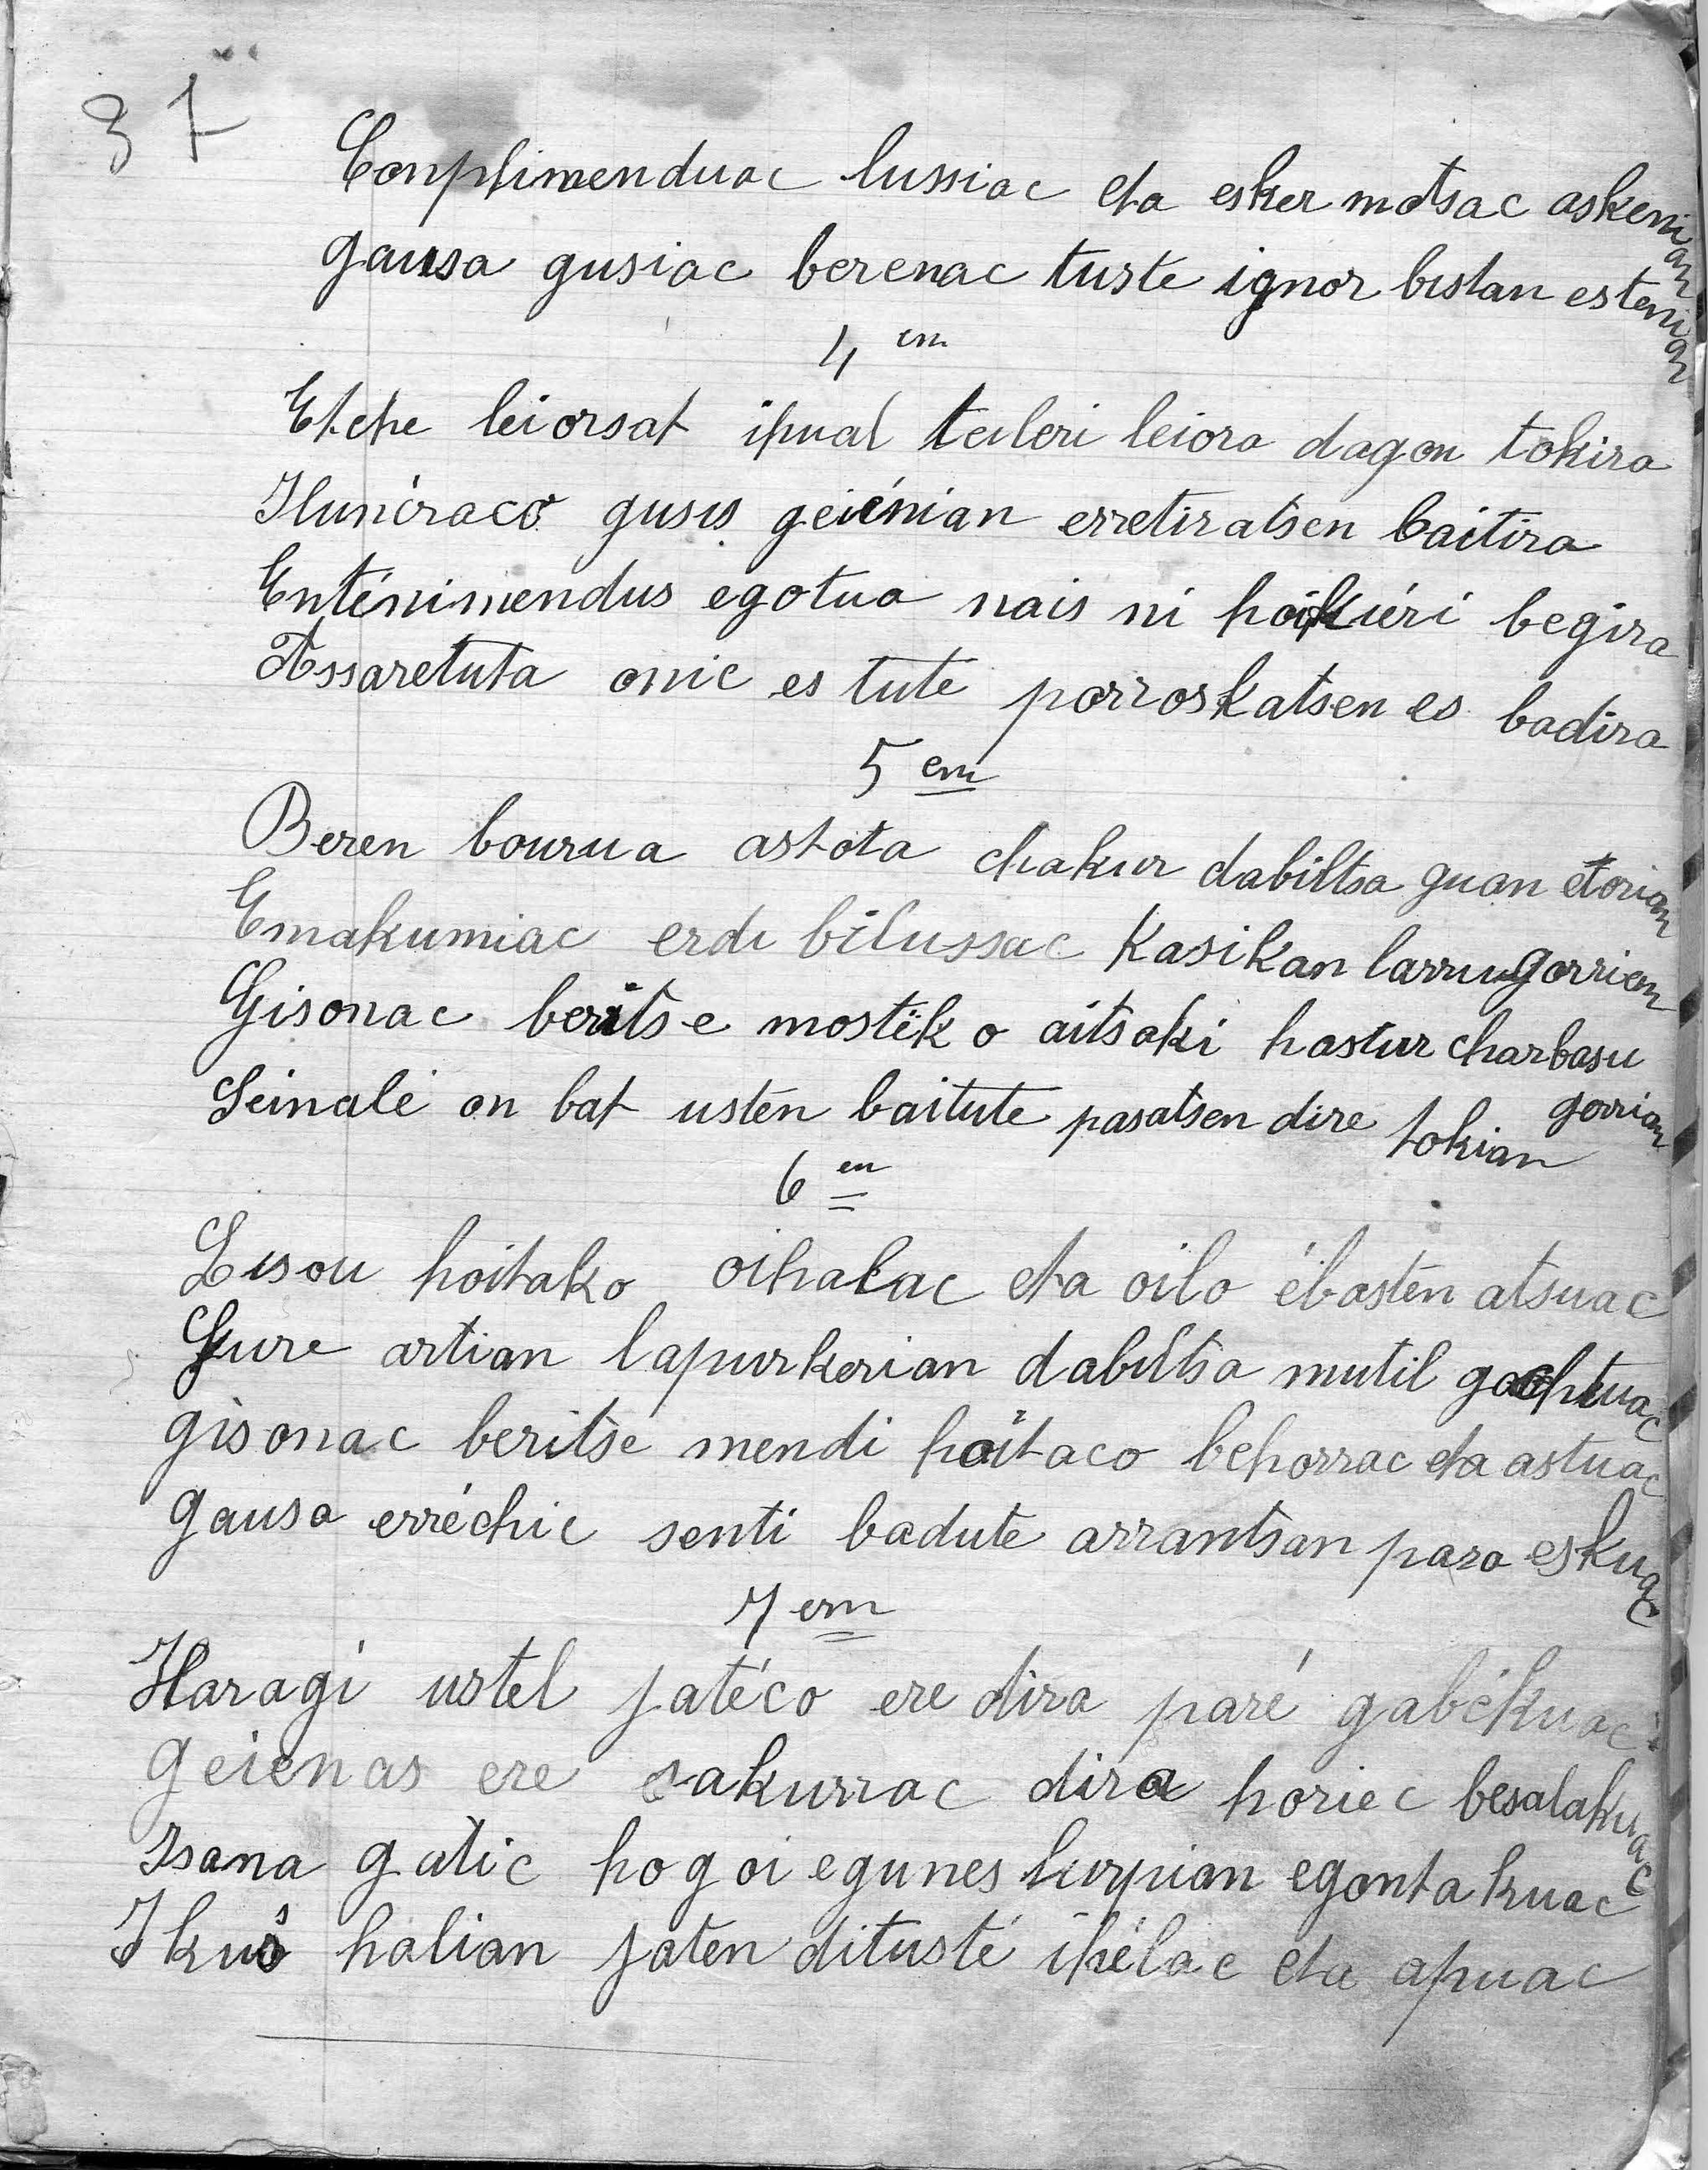 37
Conplimenduac lussiac eta esker motsac askenian
gausa gusiac berenac tuste ignor bistan estenian
4 em
Etche leiorsat ipual teileri leiora dagon tokira
Iluncraco gusis geiénian erretiratsen baitira
Enténimendus egotua nais ni hoikiéri begira
Assaretuta onic es tute porroskatsen es badira
5 em
Beren bourua astota chakur dabiltsa guan etorian
Emakumiac erdi bilussac kasikan larrugorrien
Gisonac beritse mostëko aitsaki hastur charbasu gorrian
Seinalé on bat usten baitute pasatsen dire tokian
6 en
Lisou hoitako oihalac eta oilo ébasten atsuac
Gure artian lapurkerian dabiltsa mutil gachtuac
gisonac beritse mendi hoitaco behorrac eta astuac
gausa erréchic senti badute arrantsan para eskuac
7 em
Haragi ustel jatéco ere dira paré gabékuac
geienas ere sakurrac dira horiec besalakuac
Isana gatic hogoi egunes lurpian egontakuac
Ikus halian jaten dituste ihélac eta apuac